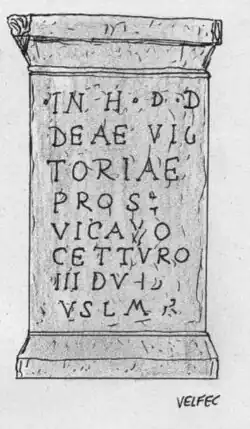 ·IN · H · D · D
DEAE VIC
TORIAE
PRO S
VICAVO
CETTVRO
III DV
VSLM
VELFEC